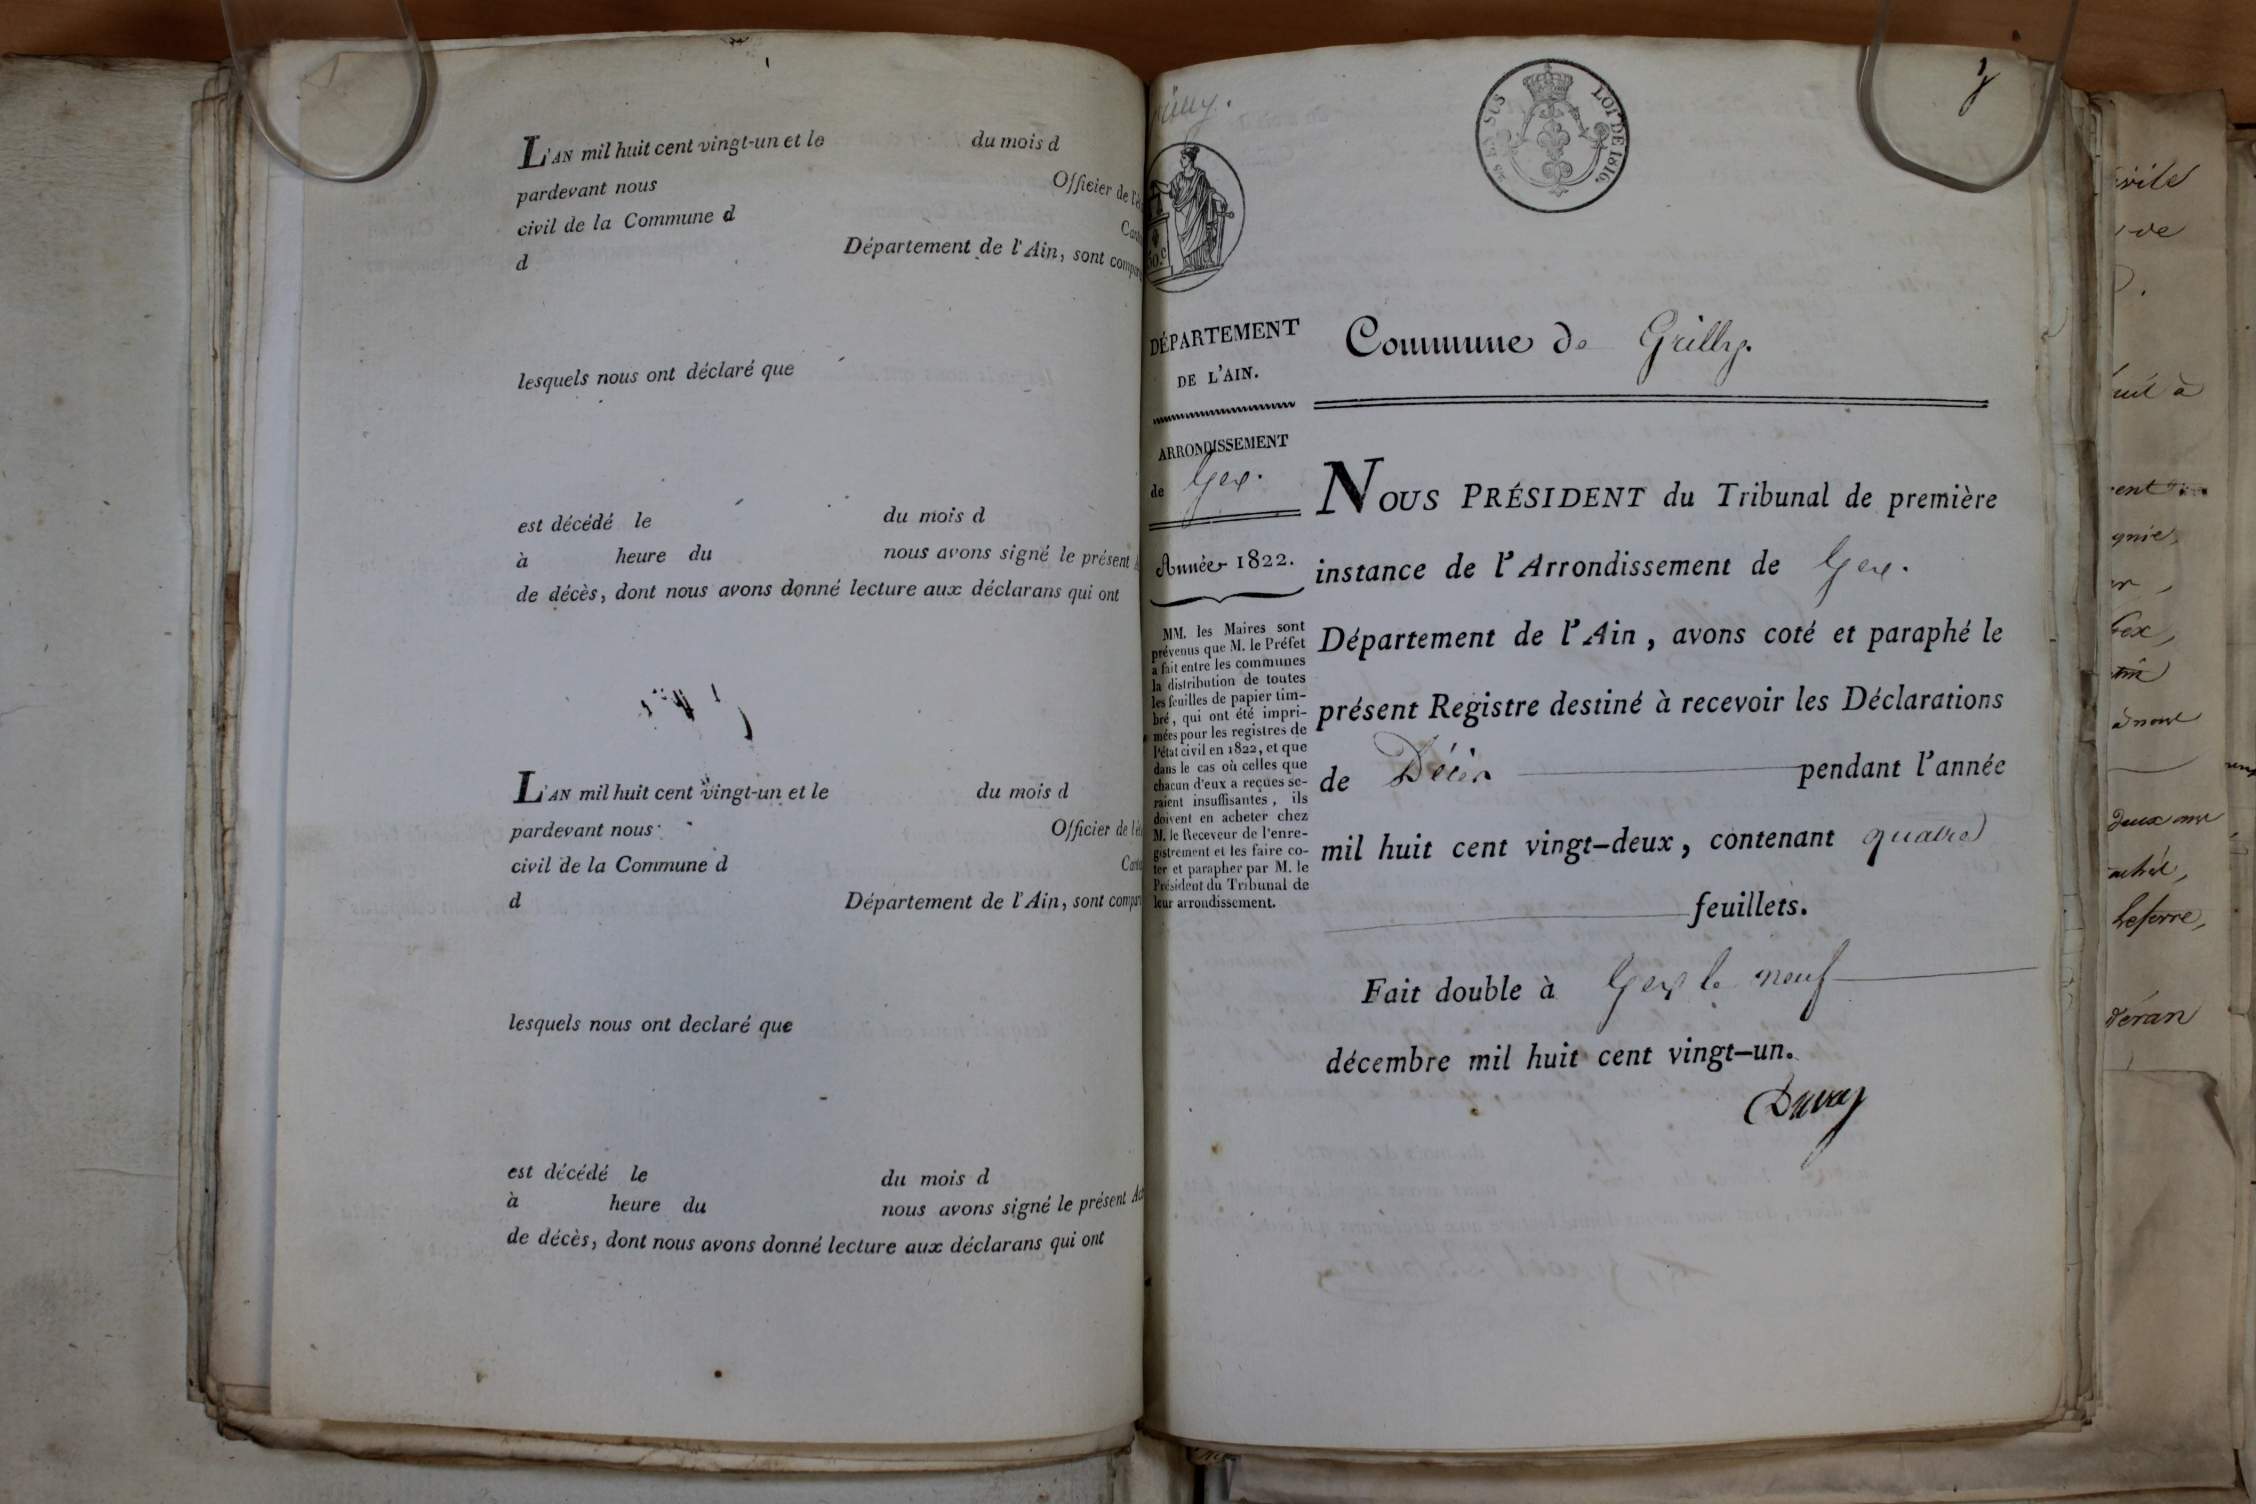 L'AN mil huit cent vingt-un et le du mois d
pardevant nous Officier de l'é
civil de la Commune d
d Département de l'Ain, sont
lesquels nous ont déclaré que
est décédé le du mois d
à heure du nous avons signé le présent
de décès, dont nous avons donné lecture aux déclarans qui ont
L'AN mil huit cent vingt-un et le du mois d
pardevant nous Officier de
civil de la Commune d
d Département de l'Ain, sont
lesquels nous ont declaré que
est décédé le du mois d
à heure du nous avons signé le présent
de décès, dont nous avons donné lecture aux déclarans qui ont
LOI DE 1816.
DÉPARTEMENT
DE L'AIN.
ARRONDISSEMENT
de Gex.
Année 1822.
MM. les Maires sont
prévenus que M. le Préfet
a fait entre les communes
la distribution de toutes
les feuilles de papier tim-
bré, qui ont été impri-
mées pour les registres de
l'état civil en 1822, et que
dans le cas où celles que
chacun d'eux a reçues se-
raient insuffisantes, ils
doivent en acheter chez
M. le Receveur de l'enre-
gistrement et les faire co-
ter et parapher par M. le
Président du Tribunal de
leur arrondissement.
Commune de Grilly.
NOUS PRÉSIDENT du Tribunal de première
instance de l'Arrondissement de Gex.
Département de l'Ain, avons coté et paraphé le
présent Registre destiné à recevoir les Déclarations
de Décès pendant l'année
mil huit cent vingt-deux, contenant quatre
feuillets.
Fait double à Gex le neuf
décembre mil huit cent vingt-un.
gnie,
Gex,
deux ans
Leferre,